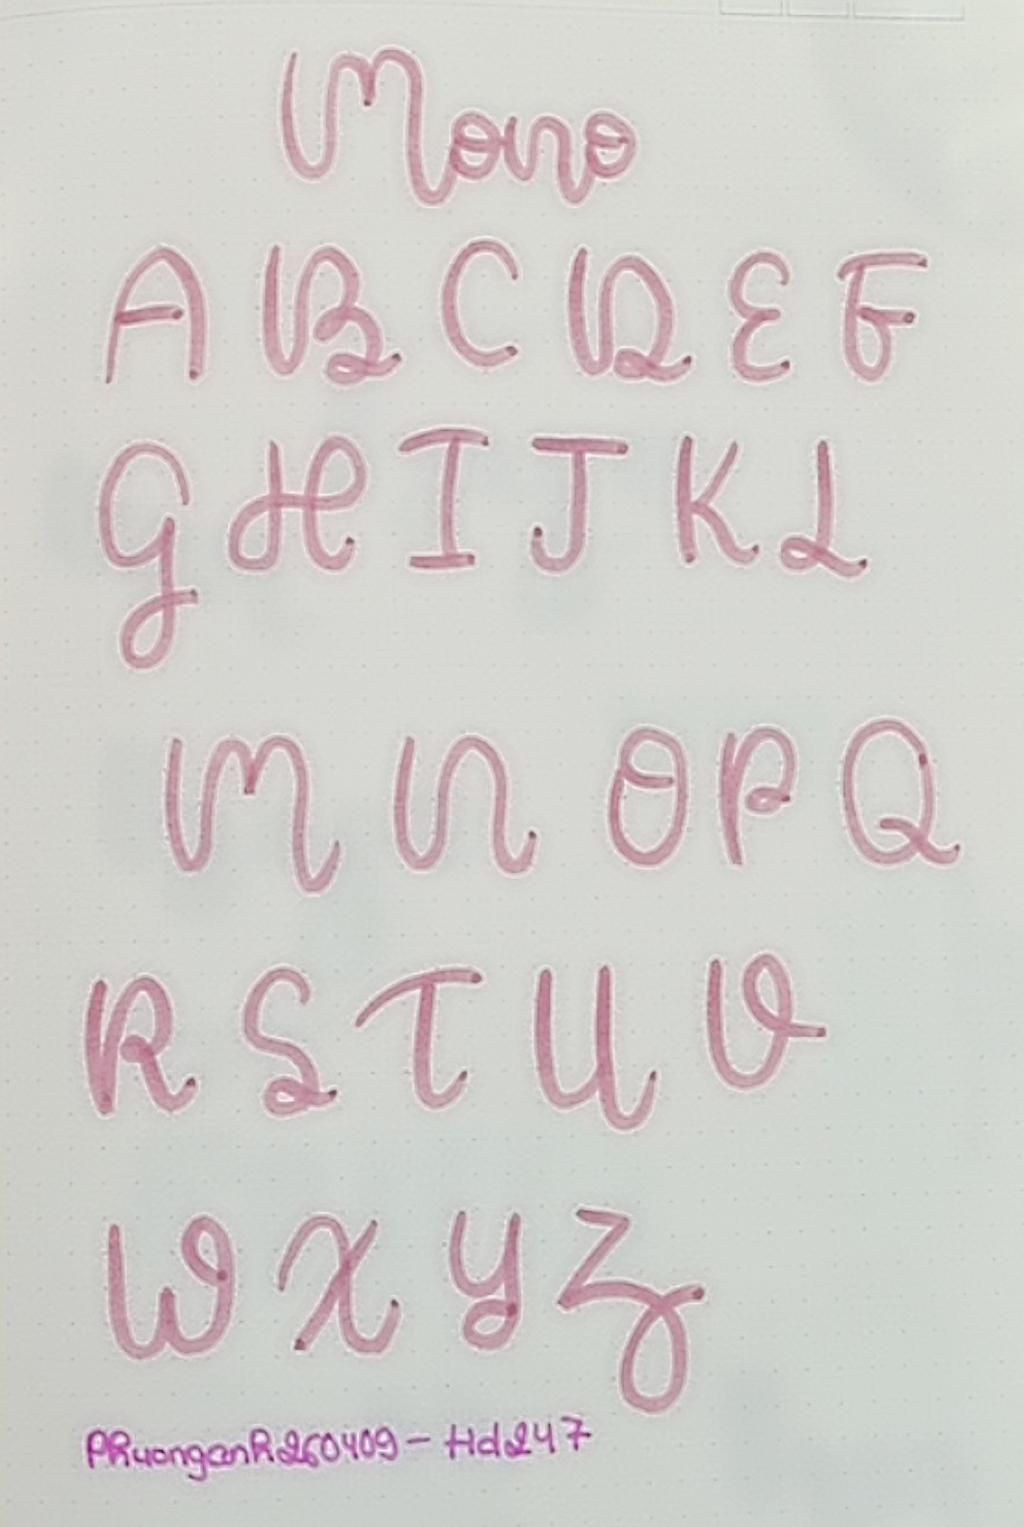 Mono
A B C D E F
G H I J K L
M N O P Q
R S T U V
W X Y Z
Phuonganh260409 - Hd247